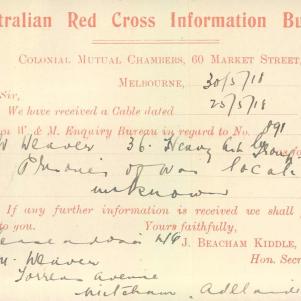 tralian Red Cross Information Bu
COLONIAL MUTUAL CHAMBERS, 60 MARKET STREET,
MELBOURNE, 30/5/18
Sir,
We have received a Cable dated 25/5/18
n W. & M. Enquiry Bureau in regard to No. 891
W Weaver 36. Heavy Art
Prisoner of War locali
unknown
If any further information is received we shall
to you. Yours faithfully,
J. BEACHAM KIDDLE,
Weaver Hon. Secr
Torrens Avenue
Mitcham. Adelaide